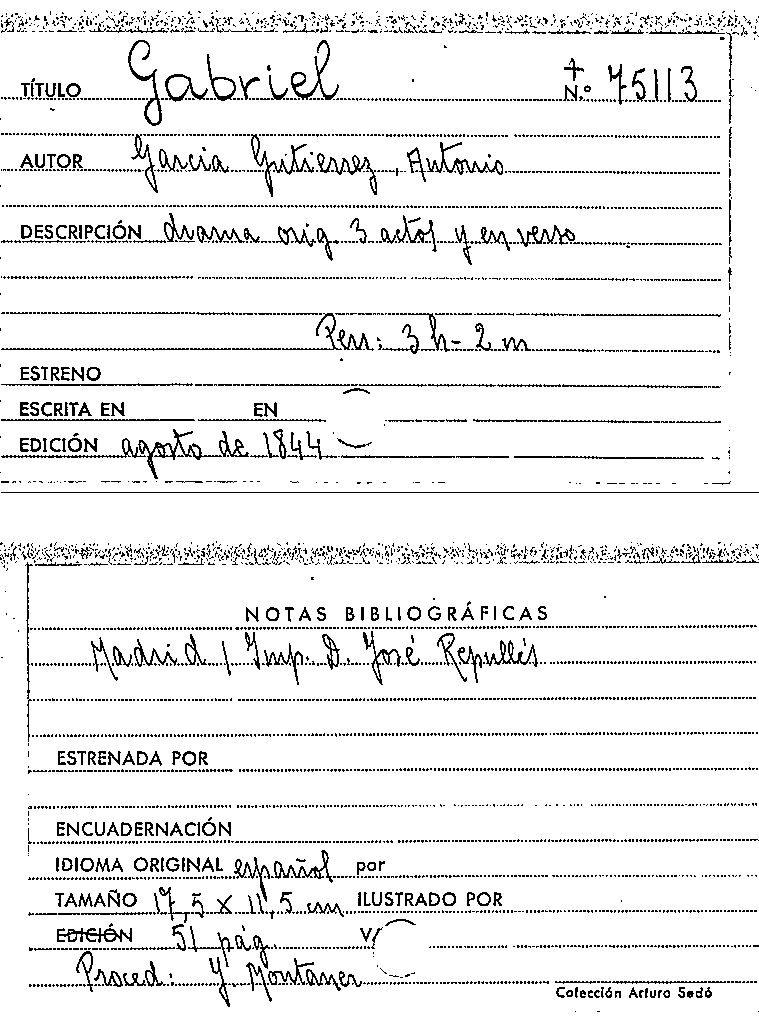 TÍTULO Gabriel + N.º 75113
AUTOR Garcia Gutierrez, Antonio
DESCRIPCIÓN drama orig. 3 actos y en verso
Pers: 3 h - 2 m
ESTRENO
ESCRITA EN EN
EDICIÓN agosto de 1844
NOTAS BIBLIOGRÁFICAS
Madrid / Imp. D. José Repullés
ESTRENADA POR
ENCUADERNACIÓN
IDIOMA ORIGINAL español por
TAMAÑO 17,5 x 11,5 cm ILUSTRADO POR
EDICIÓN 51 pág. V/
Proced: Y. Montaner
Colección Arturo Sedó